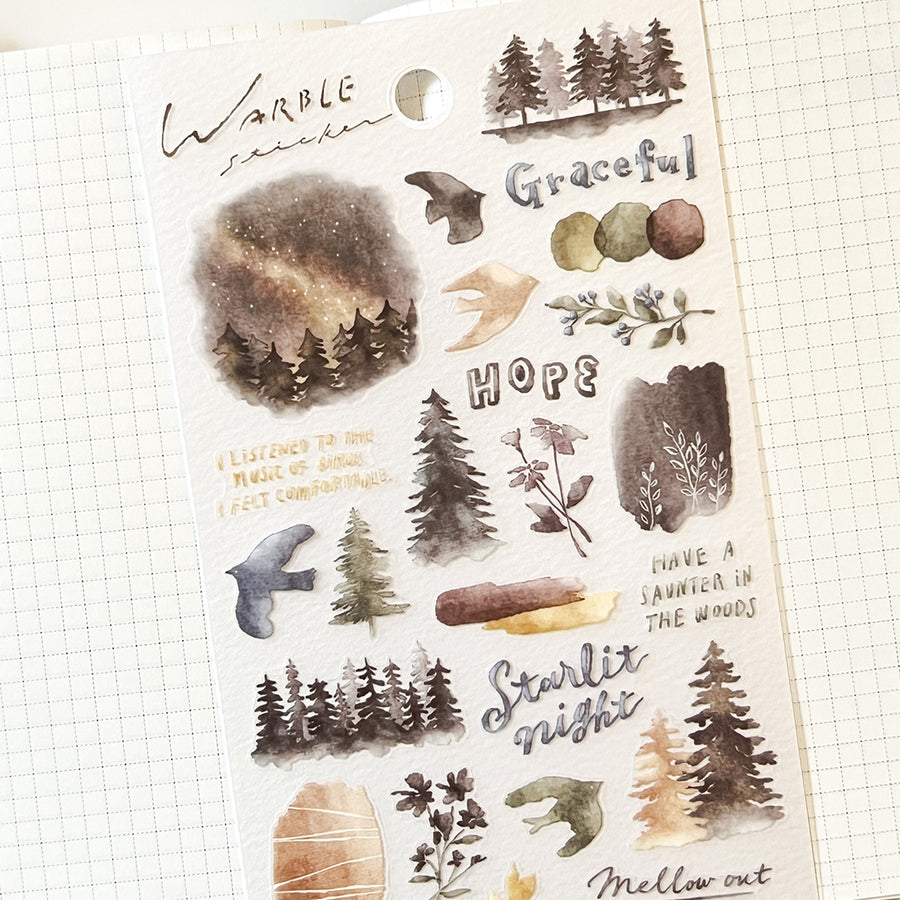 WARBLE
sticker
Graceful
HOPE
I LISTENED TO THE
MUSIC OF BIRDS
I FELT COMFORTABLE.
HAVE A
SAUNTER IN
THE WOODS
Starlit
night
Mellow out